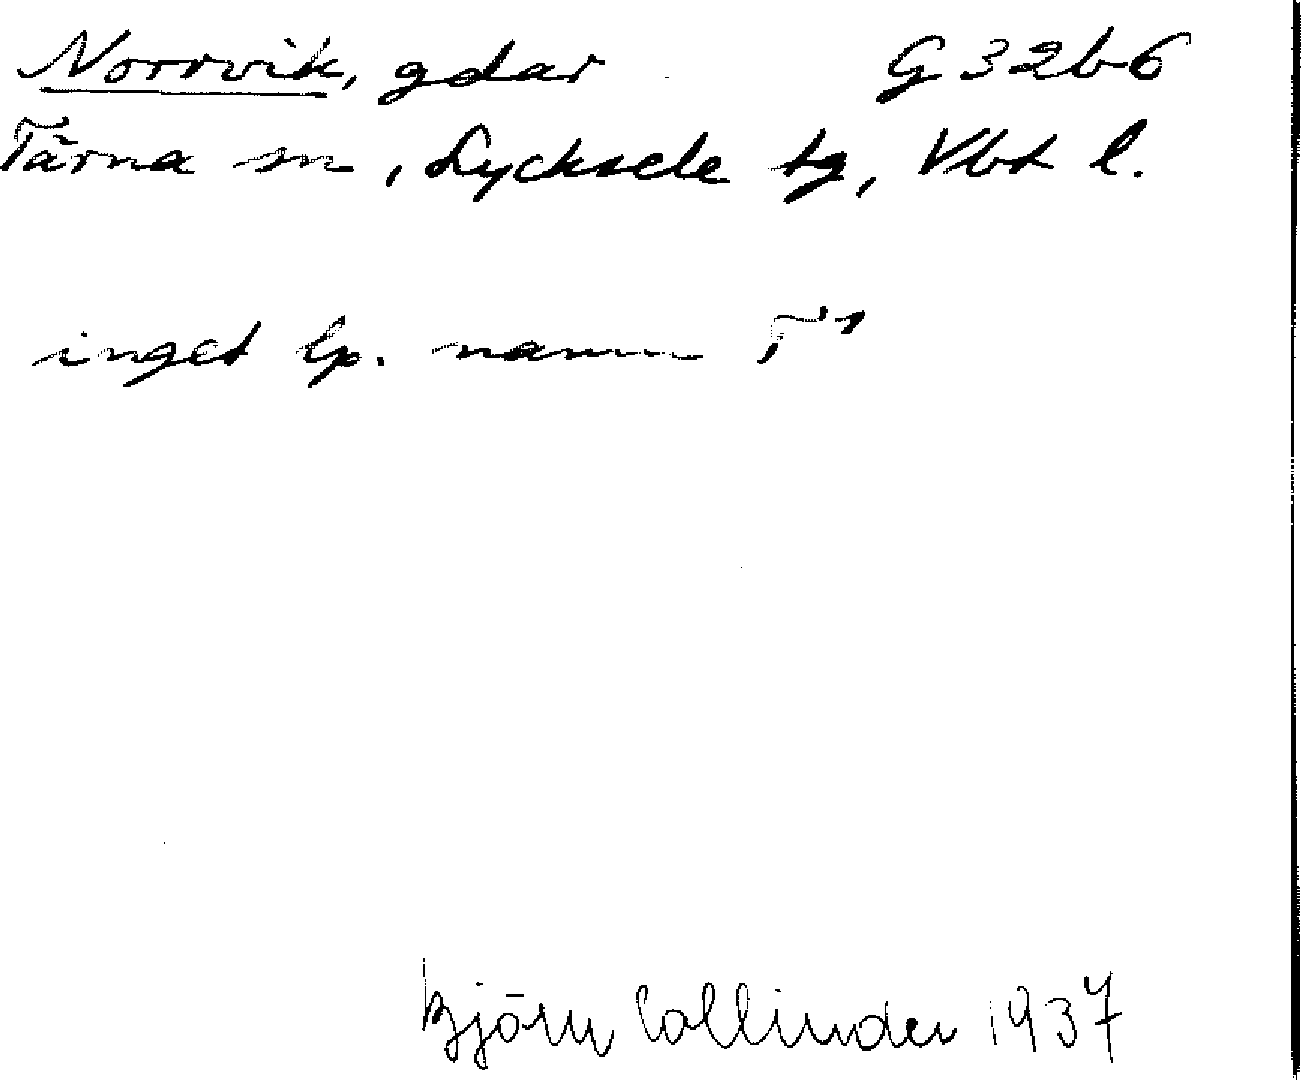 Norrvik, gdar G 32b6
Tärna sn, Lycksele tg, Vbt l.
inget lp. namn T¹
Björn Collinder 1937